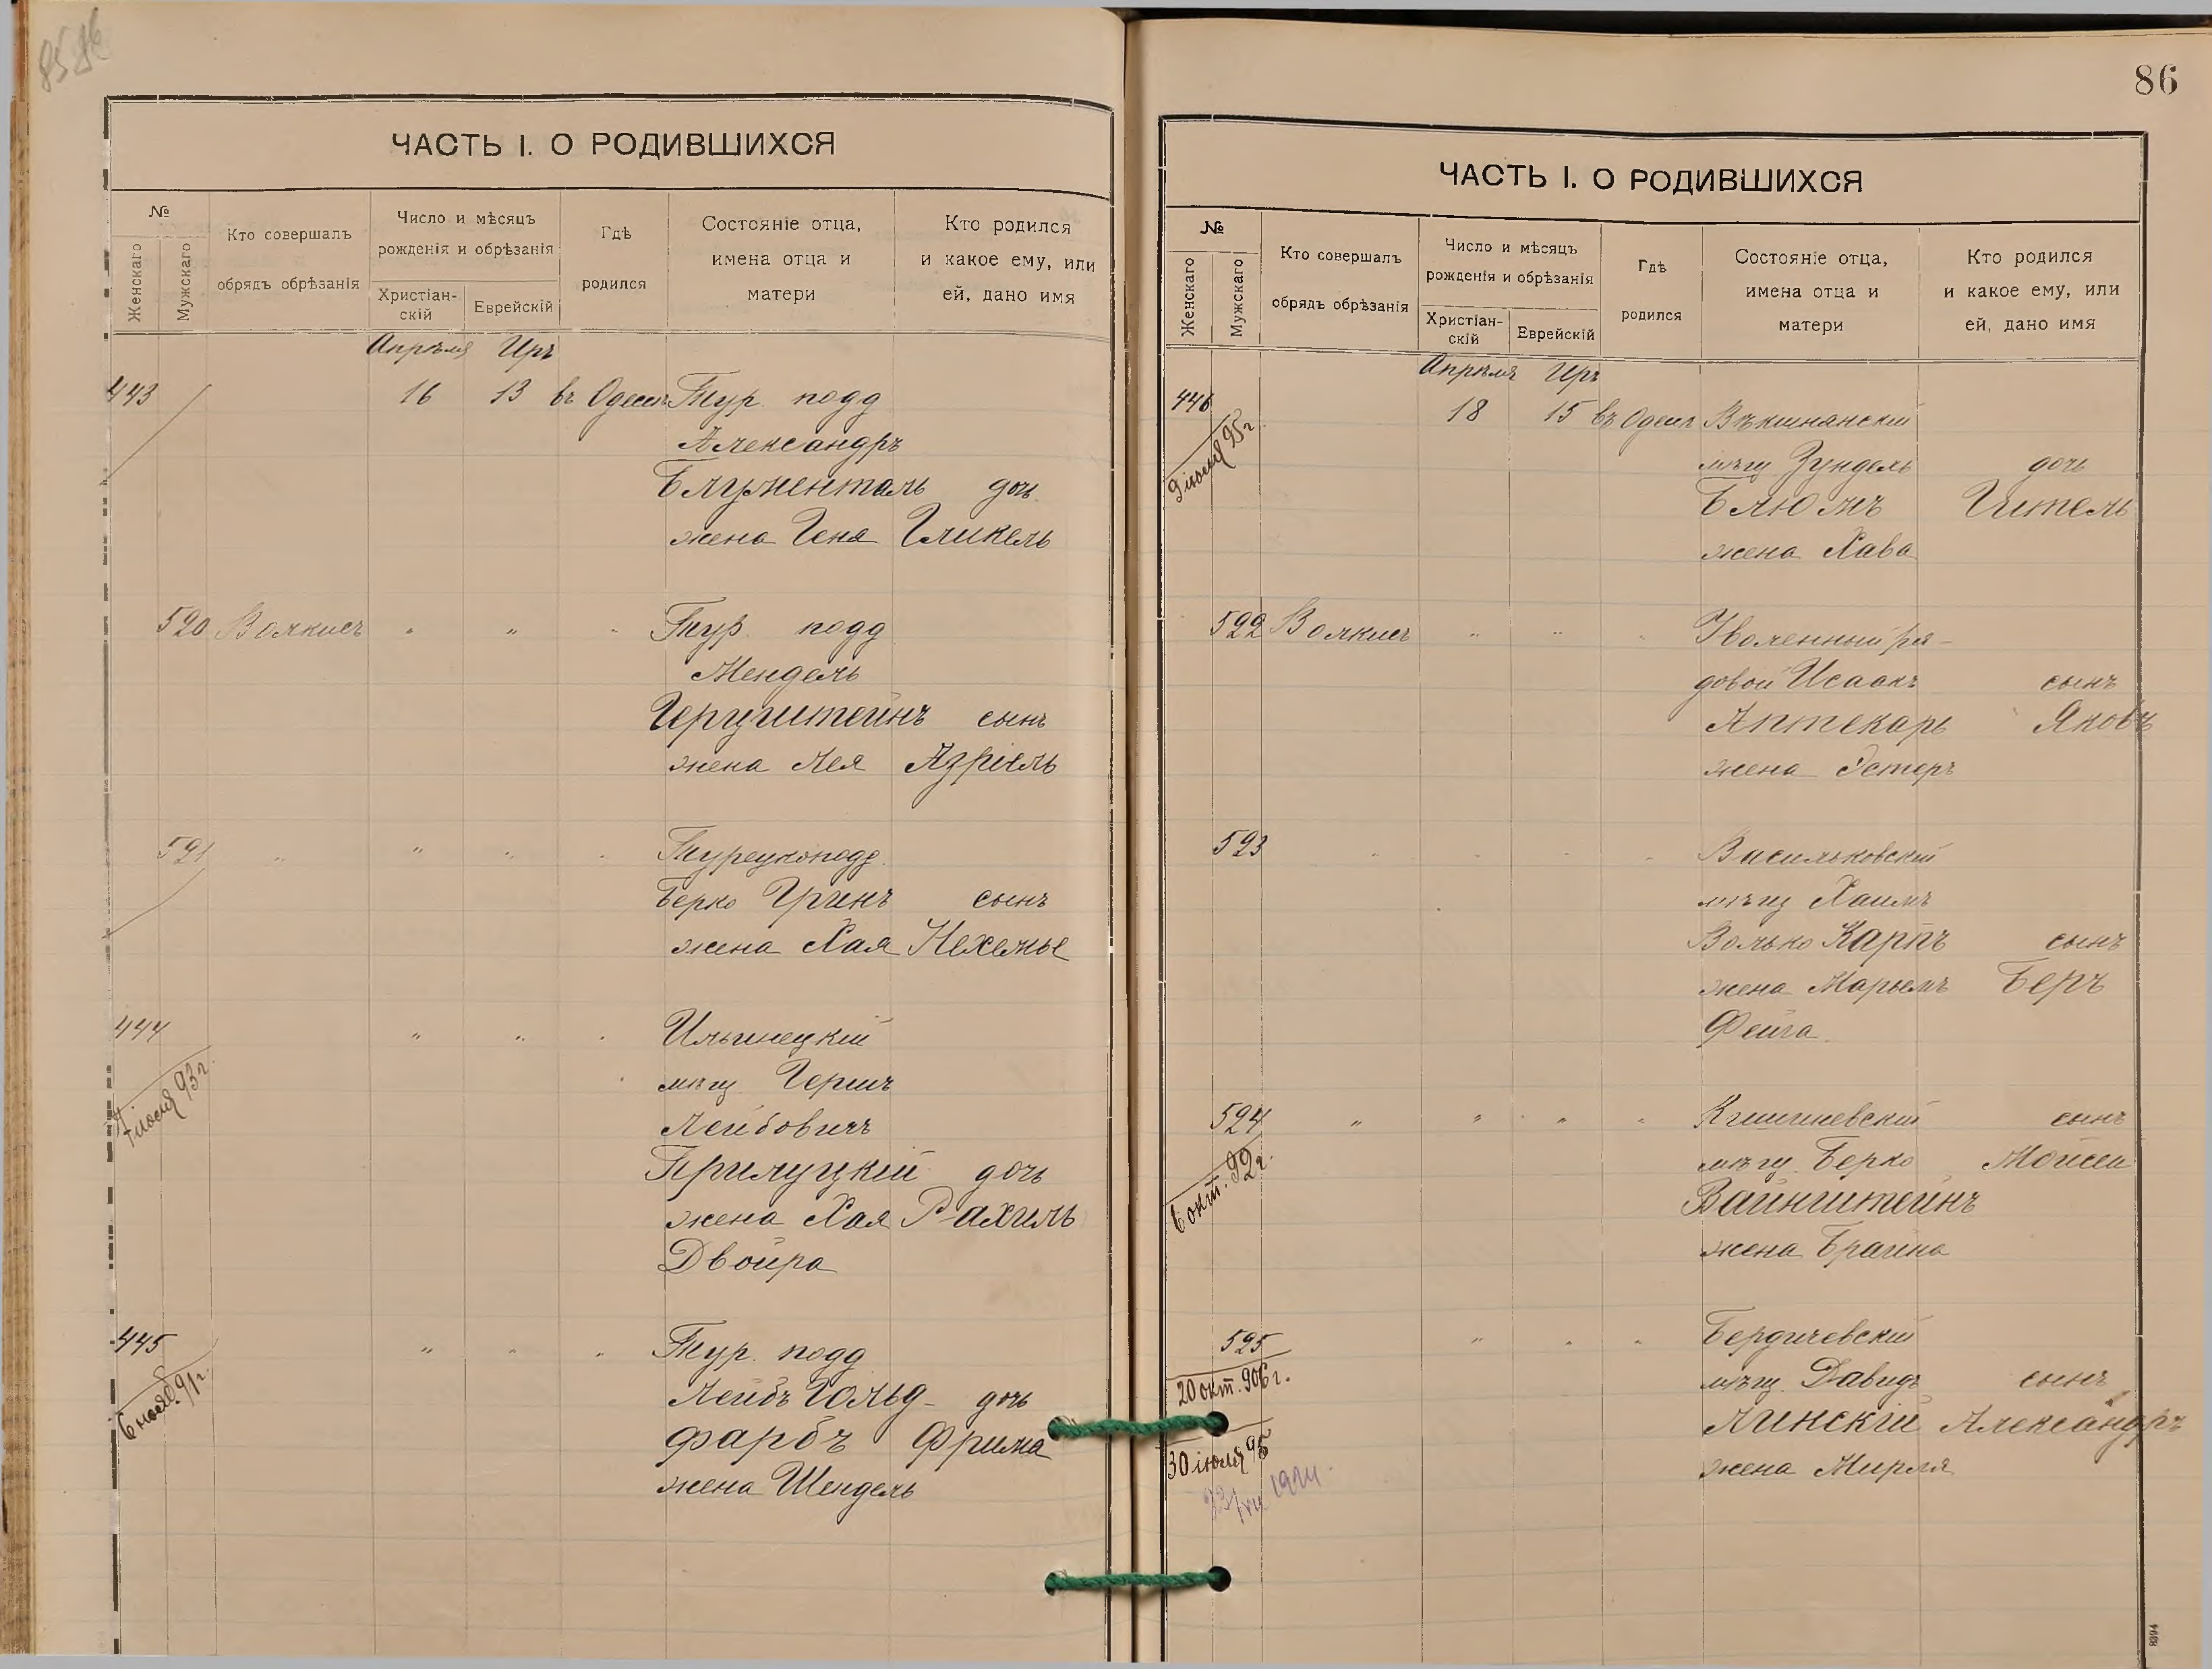 85 86
ЧАСТЬ I. О РОДИВШИХСЯ
№
Женскаго
Мужскаго
Кто совершалъ
обрядъ обрѣзанія
Число и мѣсяцъ
рожденія и обрѣзанія
Христіан-
скій
Еврейскій
Гдѣ
родился
Состояніе отца,
имена отца и
матери
Кто родился
и какое ему, или
ей, дано имя
Апрѣля Иръ
443 16 13 въ Одессѣ Тур. подд
Александръ
Блументаль дочь
жена Геня Гликель
520 Волкисъ " " " Тур. подд
Мендель
Герцштейнъ сынъ
жена Лея Азріель
521 " " " " Турецкоподд.
Берко Гринъ сынъ
жена Хая Нехемье
444 " " " Ильинецкій
7 іюля 93 г.
мѣщ Гершъ
Лейбовичъ
Прилуцкій дочь
жена Хая Рахиль
Двойра
445 " " " Тур. подд
6 нояб. 91 г.
Лейбъ Гольд- дочь
фарбъ Фрима
жена Шендель
86
ЧАСТЬ I. О РОДИВШИХСЯ
№
Женскаго
Мужскаго
Кто совершалъ
обрядъ обрѣзанія
Число и мѣсяцъ
рожденія и обрѣзанія
Христіан-
скій
Еврейскій
Гдѣ
родился
Состояніе отца,
имена отца и
матери
Кто родился
и какое ему, или
ей, дано имя
Апрѣля Иръ
446 18 15 въ Одессѣ Вѣкшнянскій
9 іюня 95 г
мѣщ Зундель дочь
Блюмъ Гитель
жена Хава
522 Волкисъ " " " Уволенный ря-
довой Исаакъ сынъ
Аптекарь Яковъ
жена Эстеръ
523 " " " " Васильковскій
мѣщ Хаимъ
Волько Карпъ сынъ
жена Марьемъ Беръ
Фейга
524 " " " " Кишиневскій сынъ
6 окт. 92 г.
мѣщ. Берко Мойсей
Вайнштейнъ
жена Брайна
595 " " " Бердичевскій
20 окт. 906 г.
мѣщ. Давидъ сынъ
Линскій Александръ
30 іюля 95
жена Мирля
23/VII 1914.
8394